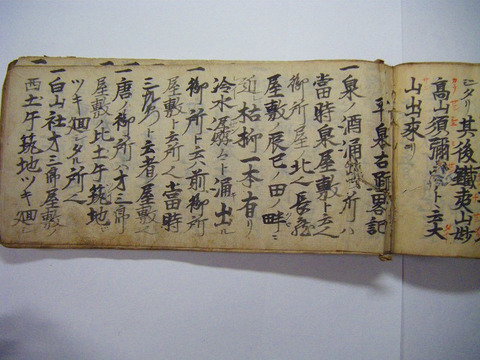 タリ其後鐵山妙
高山須彌ト云大
山出來
平泉古跡畧記
一泉ノ酒涌所ハ
當時泉屋敷ト云
御所屋北之長
屋敷ノ辰巳ノ田ノ畔ニ
近枯柳一本有リ
冷水涌出ル
一御所ト云前御所
屋敷ト云所當時
三ト云者屋敷
一唐ノ御所ハ才三
屋敷比土手築地ニ
ツキ廻シタル所
一白山社才三屋敷
西土手築地ツキ廻シ